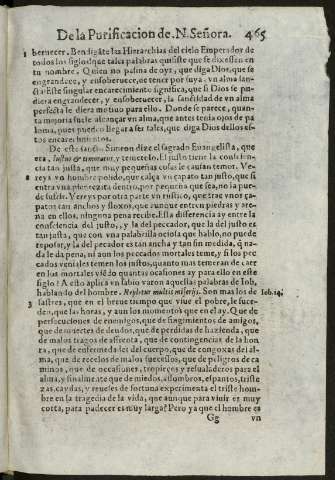 De la Purificacion de .N. Señora. 465
beruecer. Bendigãte las Hierarchias del cielo Emperador de
todos los siglos que tales palabras quisiste que se dixessen en
tu nombre. Quien no pasma de oyr, que diga Dios, que se
engrandece, y ensoberuece, de tener por suya vn alma san-
cta! Este singular encarecimiento significa, que si Dios se pu-
diera engrandecer, y ensoberuecer, la sanctidad de vn alma
perfecta le diera motiuo para ello. Donde se parece, quan-
ta mejoria suele alcançar vn alma, que antes tenia ojos de pa
loma, pues puedo llegar a ser tales, que diga Dios dellos es-
tos encarecimientos.
De este sancto Simeon dize el sagrado Euangelista, que
era, Iustus & timoratus, y temeroso. El justo tiene la conscien-
cia tan justa, que muy pequeñas cosas le causan temor. Ve-
reys a vn hombre polido, que calça vn çapato tan justo, que si
entra vna piedrezita dentro, por pequeña que sea, no la pue-
de sufrir. Vereys por otra parte vn rustico, que trae vnos ça-
patos tan anchos y floxos, que aunque entren piedras y are-
na en ellos, ninguna pena recibe. Esta differencia ay entre la
consciencia del justo, y la del peccador, que la del justo es
tan justa, que vna palabrilla ociosa que hablo, no puede
reposar, y la del peccador es tan ancha y tan sin medida, q̃ na-
da le da pena, ni aun los peccados mortales teme, y si los pec
cados veniales temen los justos, quanto mas temeran de caer
en los mortales viẽdo quantas ocasiones ay para ello en este
siglo? A esto aplica vn sabio varon aquellas palabras de Iob,
hablando del hombre. Repletur multis miserijs. Son mas los de Iob.14.
sastres, que en el breue tiempo que viue el pobre, le suce-
den, que las horas, y aun los momentos que en el ay. Que de
persecuciones de enemigos, que de fingimientos de amigos,
que de muertes de deudos, que de perdidas de hazienda, que
de malos tragos de affrenta, que de contingencias de la hon
ra, que de enfermedades del cuerpo, que de congoxas del al-
ma, que de recelos de malos sucessos, que de peligros de ca
minos, que de occasiones, tropieços y resualaderos para el
alma, y finalmente que de miedos, assombros, espantos, triste
zas, caydas, y reueses de fortuna experimenta el triste hom-
bre en la tragedia de la vida, que aunque para viuir es muy
corta, para padecer es muy larga? Pero ya que el hombre es
Gg vn